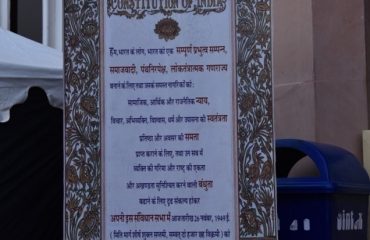 CONSTITUTION OF INDIA
हम, भारत के लोग, भारत को एक सम्पूर्ण प्रभुत्व सम्पन्न,
समाजवादी, पंथनिरपेक्ष, लोकतंत्रात्मक गणराज्य
बनाने के लिए, तथा उसके समस्त नागरिकों को:
सामाजिक, आर्थिक और राजनैतिक न्याय,
विचार, अभिव्यक्ति, विश्वास, धर्म और उपासना की स्वतंत्रता
प्रतिष्ठा और अवसर की समता
प्राप्त कराने के लिए, तथा उन सब में
व्यक्ति की गरिमा और राष्ट्र की एकता
और अखण्डता सुनिश्चित करने वाली बंधुता
बढ़ाने के लिए दृढ़ संकल्प होकर
अपनी इस संविधान सभा में आज तारीख 26 नवंबर, 1949 ई.
( मिति मार्ग शीर्ष शुक्ल सप्तमी, सम्वत् दो हजार छह विक्रमी ) को